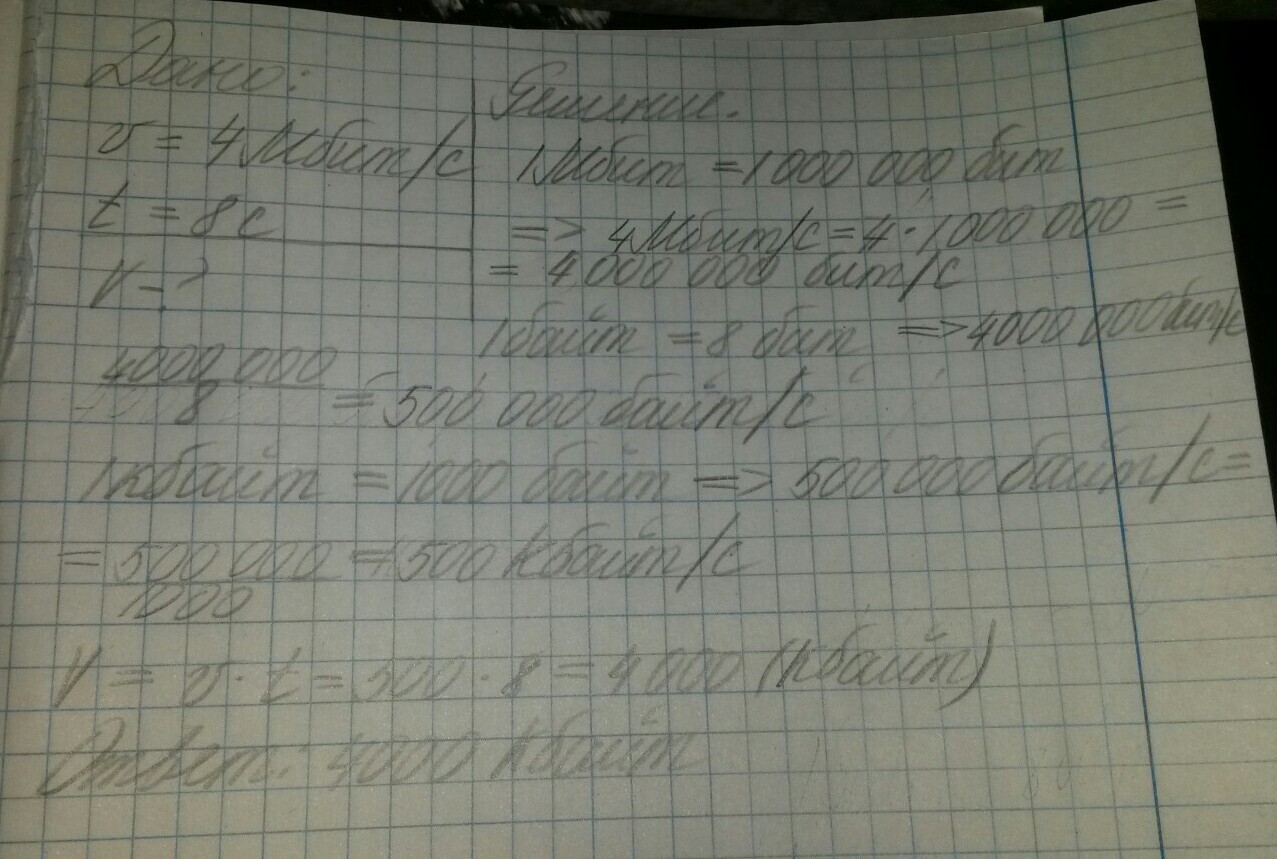 Дано:
v = 4 Мбит/с
t = 8 с
V - ?
Решение.
1 Мбит = 1 000 000 бит
=> 4 Мбит/с = 4 · 1 000 000 =
= 4 000 000 бит/с
1 байт = 8 бит => 4000 000 бит/с
4000 000
8 = 500 000 байт/с
1 кбайт = 1000 байт => 500 000 байт/с =
= 500 000 = 500 кбайт/с
1000
V = v · t = 500 · 8 = 4 000 (кбайт)
Ответ: 4000 кбайт